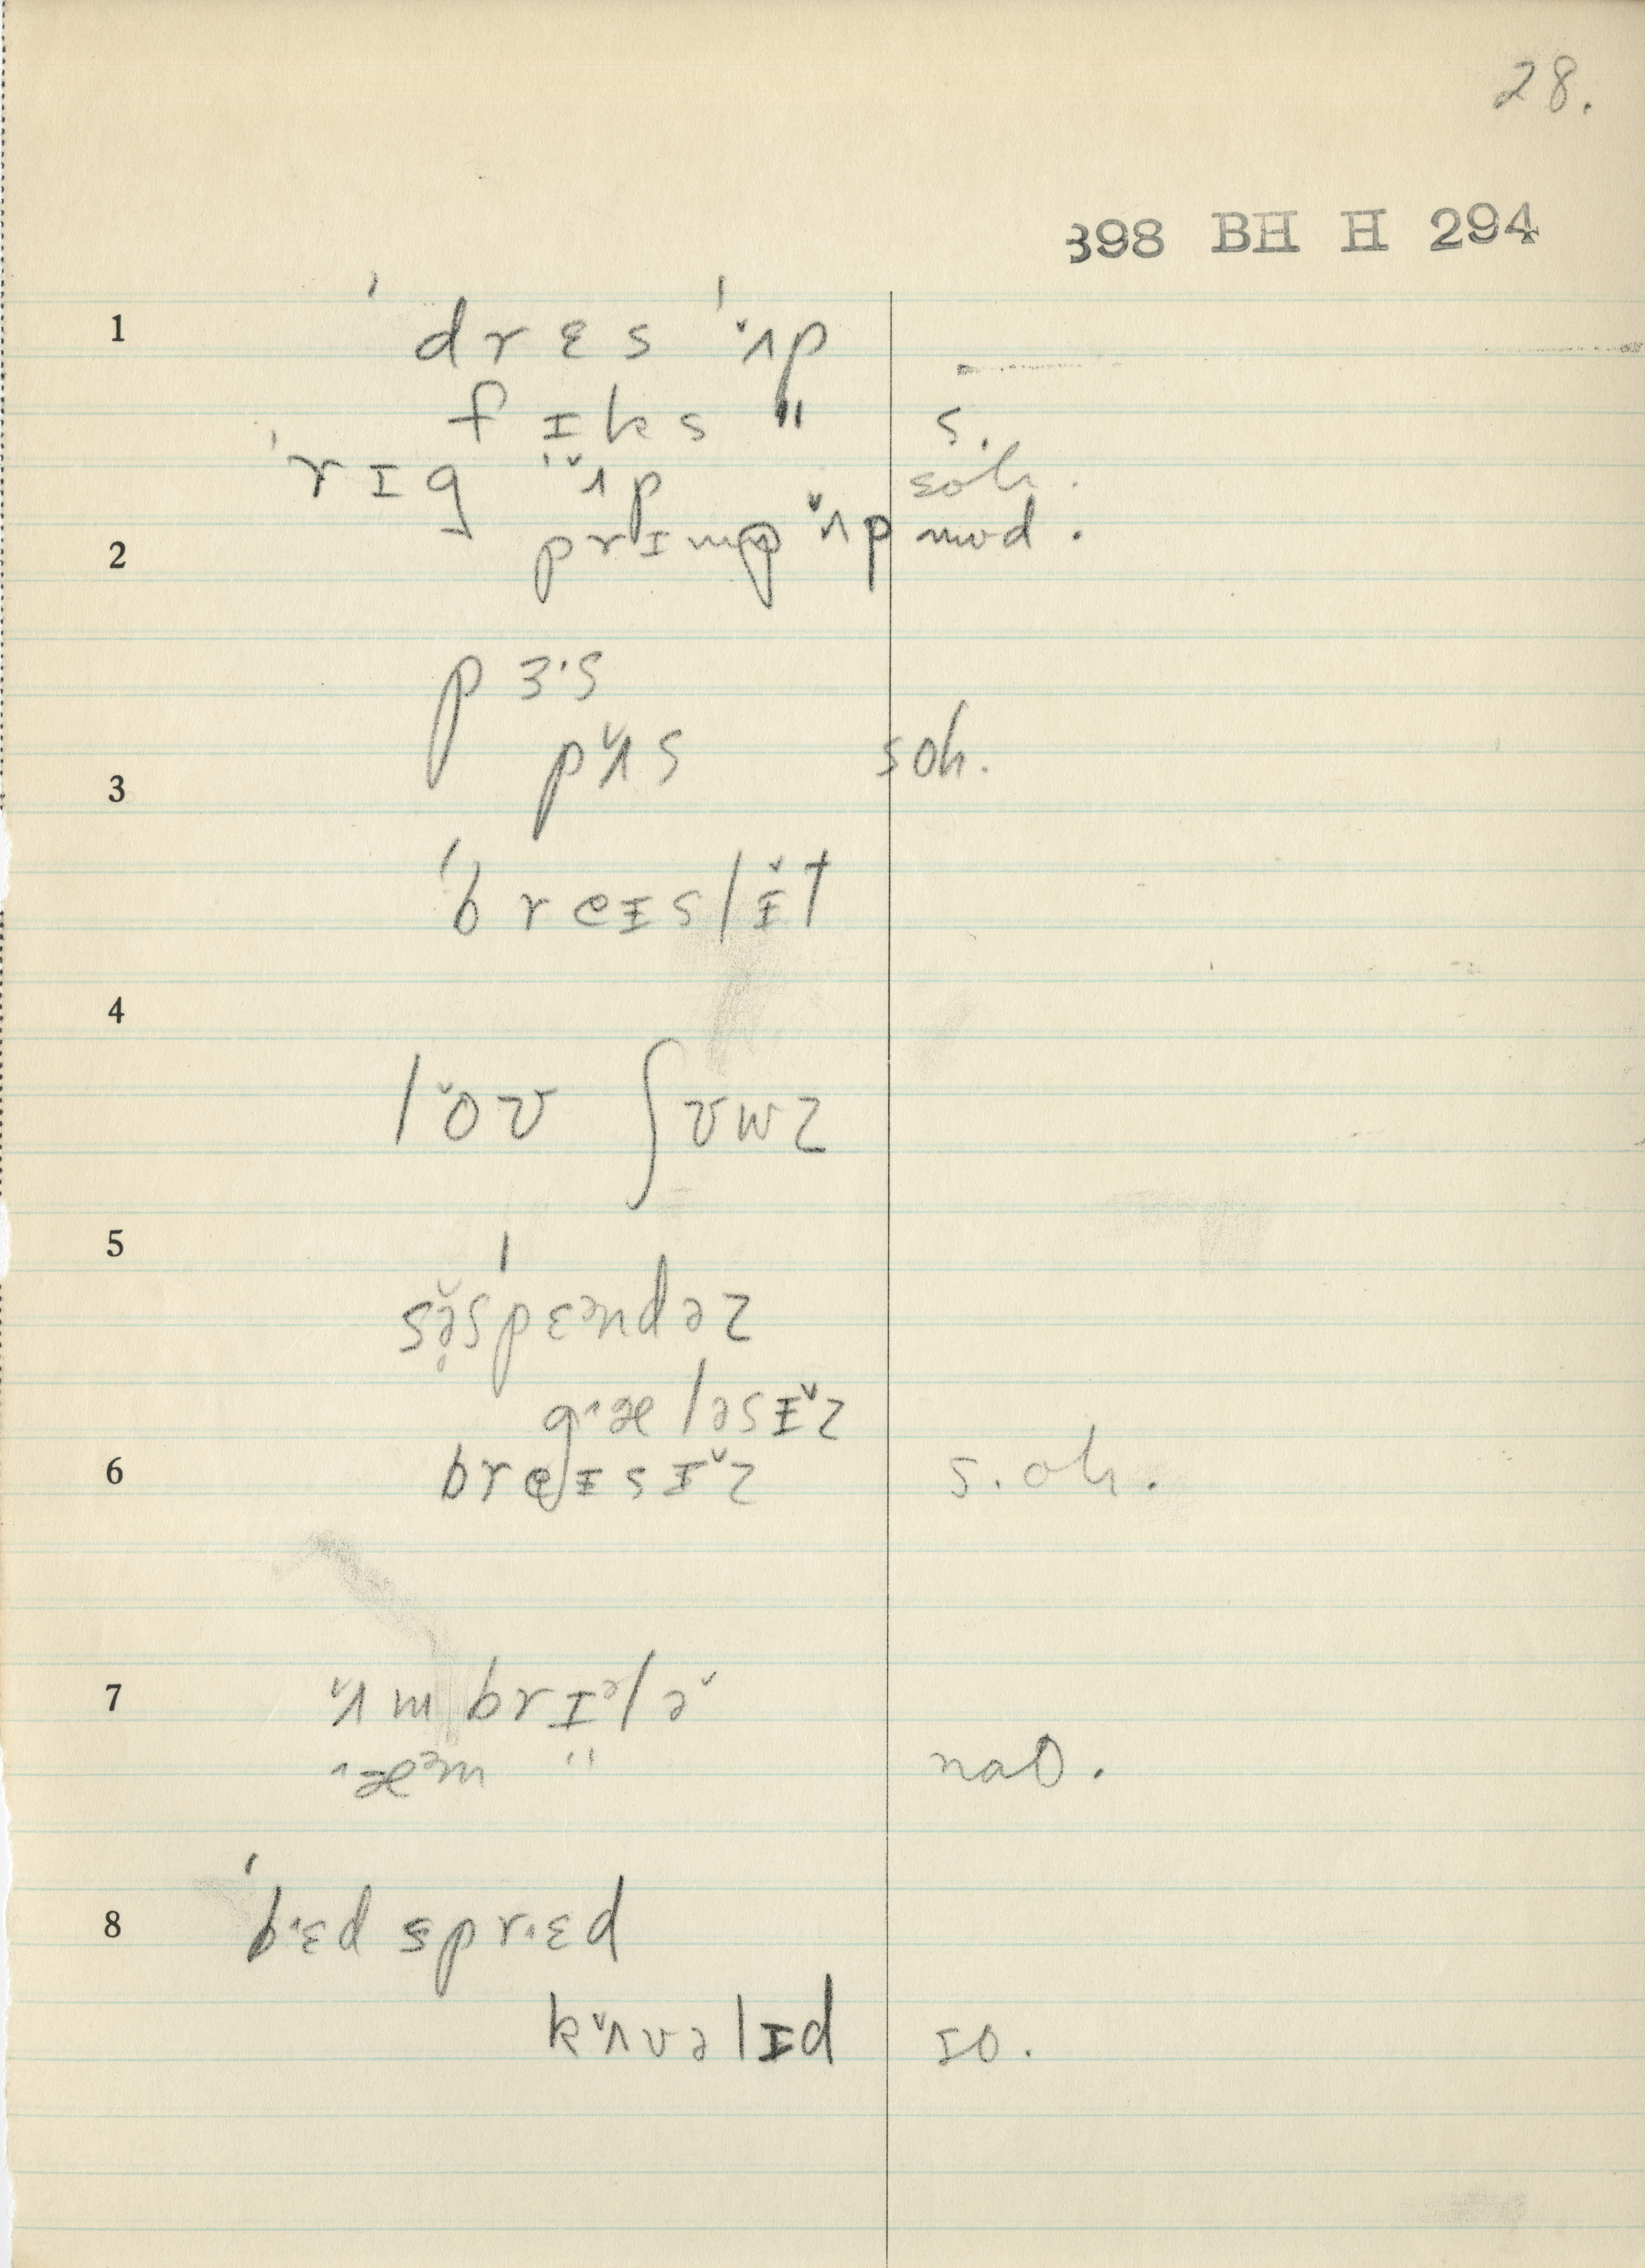 28.
398 BH H 294
1 ˈdrɛs ˈʌ̌p
fɪks " s.
ˈrɪg ˈʌ̌p soh.
2 prɪmp ʌ̌p mod.
pɜ·s
3 pʌ̌s soh.
ˈbreɪslɪ̌t
4
lǒʊ ʃʊuz
5
sə̥̌ˈspɛᵊndəz
g˄æləsɪ̌z
6 breɪsɪ̌z s.oh.
7 ʌ̌mbrɪᵊlə̌
˄æᵊm " naO.
8 ˈb˄ɛdspr˄ɛd
kʌ̌vəlɪd IO.